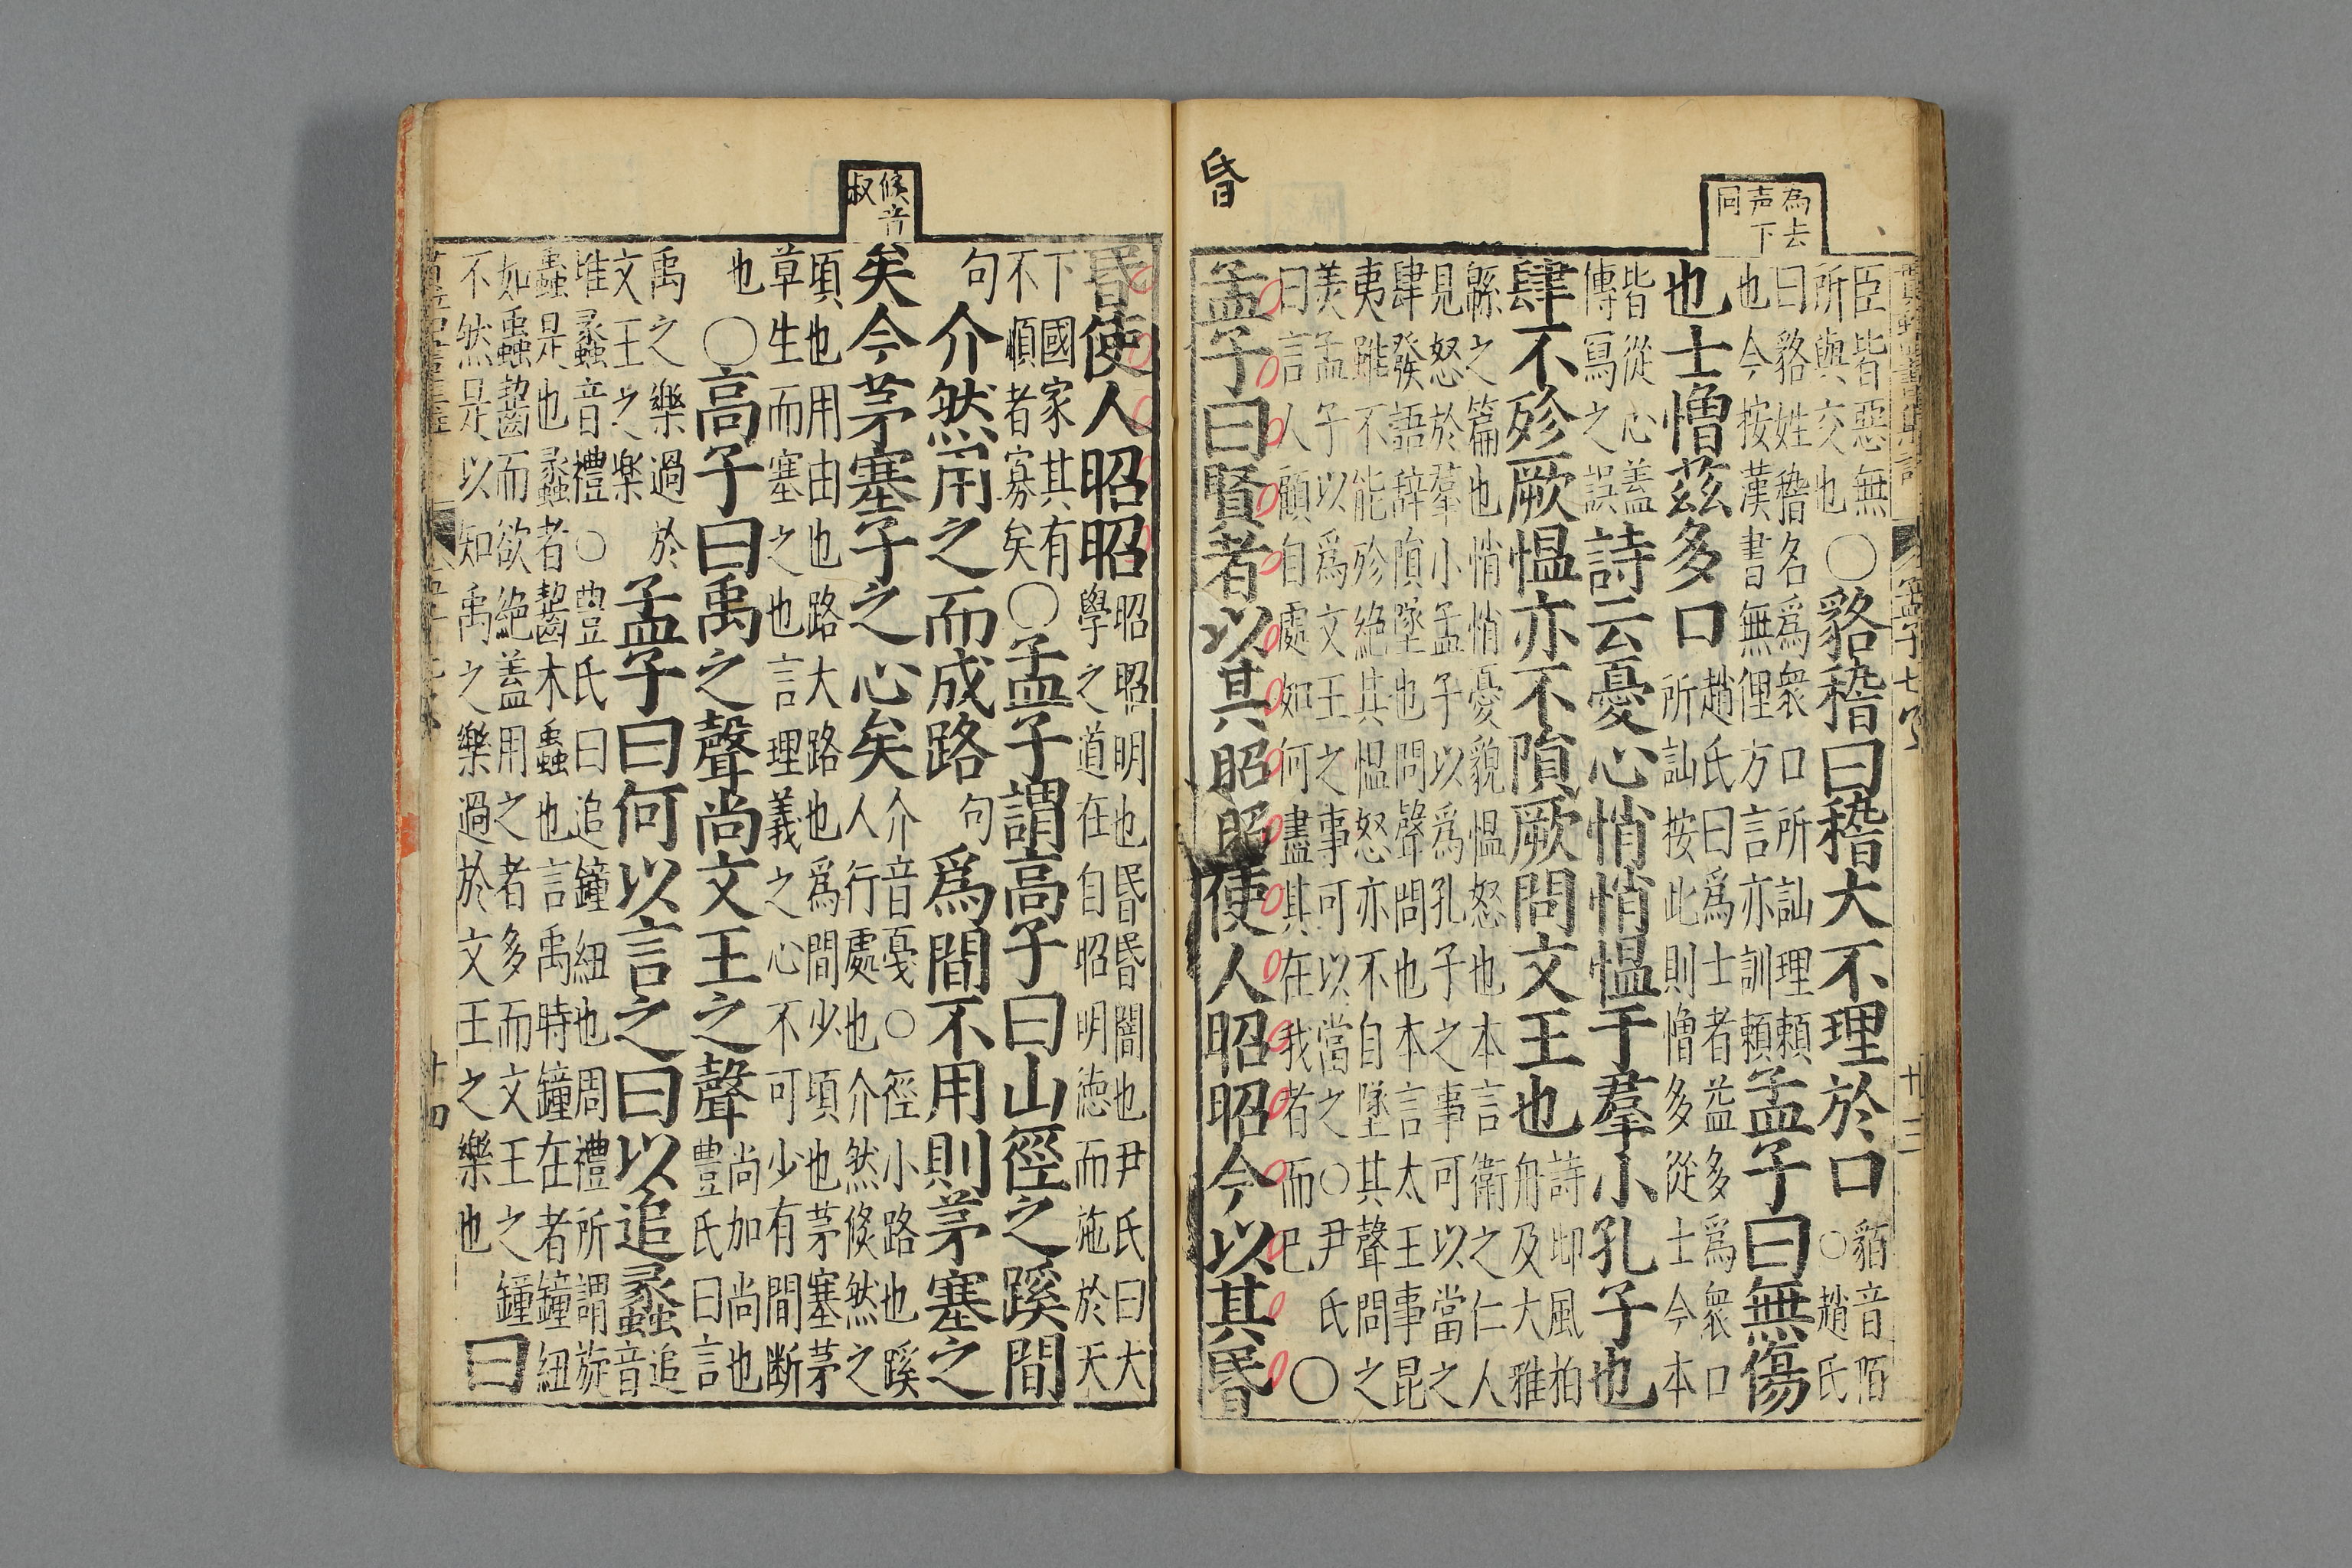 為去
声下
同
臣皆惡無
所與交也
〇貉稽曰稽大不理於口
貊音陌
〇趙氏
曰貉姓稽名爲衆口所訕理頼
也今按漢書無俚方言亦訓頼
孟子曰無傷
也士憎茲多口
趙氏曰爲士者益多爲衆口
所訕按此則憎多從士今本
皆從心蓋
傳冩之誤
詩云憂心悄悄愠于羣小孔子也
肆不殄厥愠亦不隕厥問文王也
詩邶風柏
舟及大雅
緜之篇也悄悄憂貌愠怒也本言衛之仁人
見怒於羣小孟子以爲孔子之事可以當之
肆發語辞隕墜也問聲問也本言太王事昆
夷雖不能殄絶其愠怒亦不自墜其聲問之
美孟子以爲文王之事可以當之〇尹氏
曰言人顧自處如何盡其在我者而已
〇
昏
孟子曰賢者以其昭昭使人昭昭今以其昏
倏音
叔
昏使人昭昭
昭昭明也昏昏闇也尹氏曰大
學之道在自昭明徳而施於天
下國家其有
不順者寡矣
〇孟子謂高子曰山徑之蹊間
句介然用之而成路句爲間不用則茅塞之
矣今茅塞子之心矣
介音戞〇徑小路也蹊
人行處也介然倏然之
頃也用由也路大路也爲間少頃也茅塞茅
草生而塞之也言理義之心不可少有間断
也
〇高子曰禹之聲尚文王之聲
尚加尚也
豊氏曰言
禹之樂過於
文王之楽
孟子曰何以言之曰以追蠡
追
音
堆蠡音禮〇豊氏曰追鐘紐也周禮所謂旋
蟲是也蠡者齧木蟲也言禹時鐘在者鐘紐
如蟲齧而欲絶蓋用之者多而文王之鐘
不然是以知禹之樂過於文王之樂也
曰